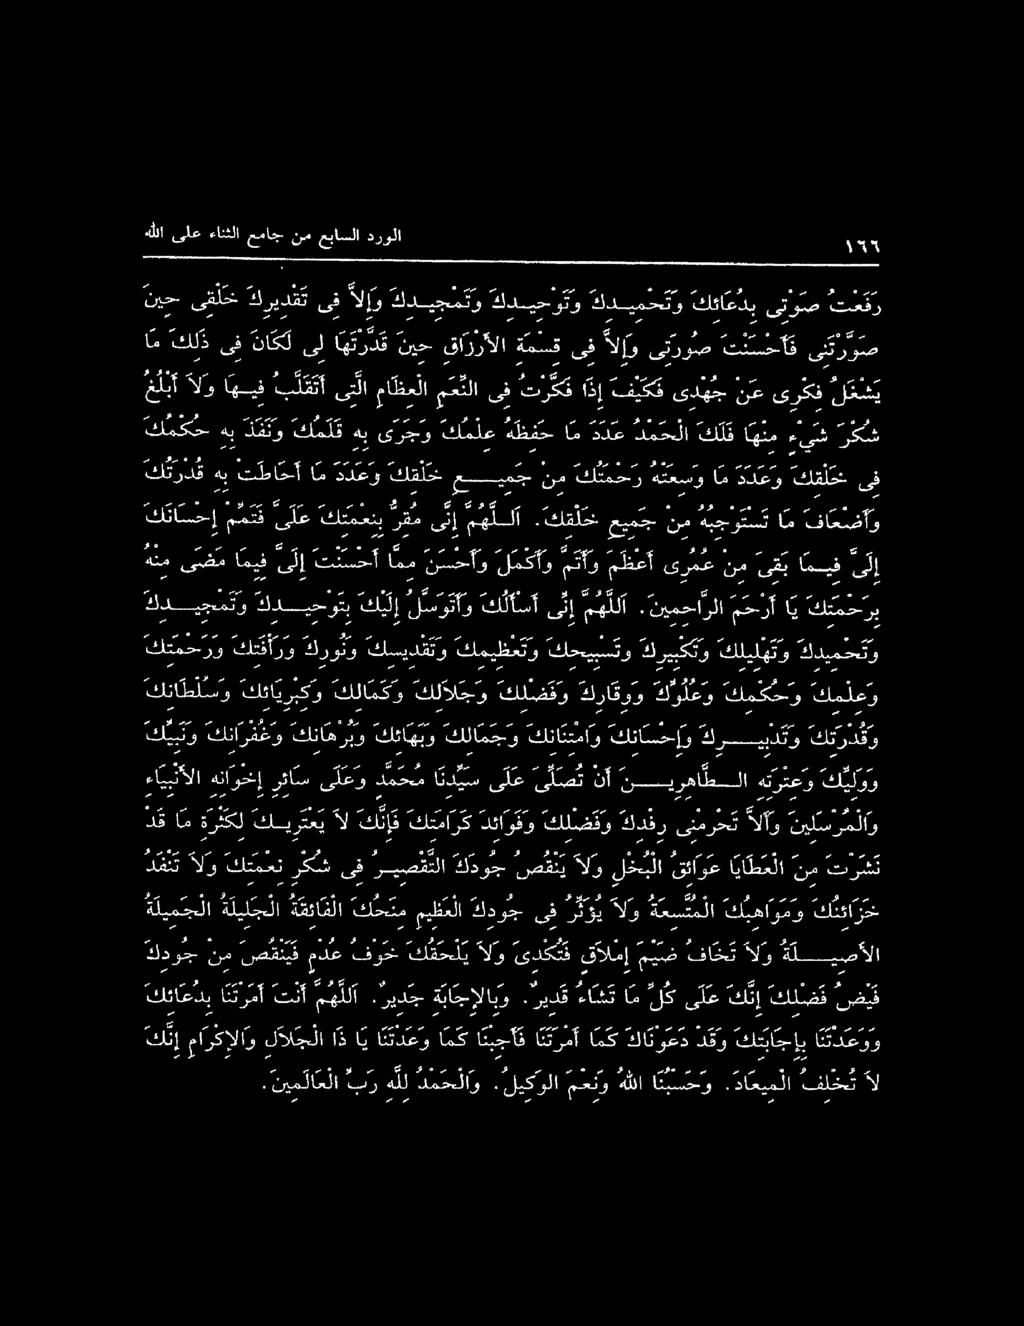 ١٦٦
الورد السابع من جامع الثناء على الله
رَفَعْتُ صَوْتِى بِدُعَائِكَ وَتَحْمِيدِكَ وَتَوْحِيدِكَ وَتَمْجِيدِكَ وَإِلاَّ فِى تَقْدِيرِكَ خَلْقِى حِينَ
صَوَّرْتَنِى فَأَحْسَنْتَ صُورَتِى وَإِلاَّ فِى قِسْمَةِ الأَرْزَاقِ حِينَ قَدَّرْتَهَا لِى لَكَانَ فِى ذَلِكَ مَا
يَشْغَلُ فِكْرِى عَنْ جُهْدِى فَكَيْفَ إِذَا فَكَّرْتُ فِى النِّعَمِ الْعِظَامِ الَّتِى أَتَقَلَّبُ فِيهَا وَلاَ أَبْلُغُ
شُكْرَ شَىْءٍ مِنْهَا فَلَكَ الْحَمْدُ عَدَدَ مَا حَفِظَهُ عِلْمُكَ وَجَرَى بِهِ قَلَمُكَ وَنَفَذَ بِهِ حُكْمُكَ
فِى خَلْقِكَ وَعَدَدَ مَا وَسِعَتْهُ رَحْمَتُكَ مِنْ جَمِيعِ خَلْقِكَ وَعَدَدَ مَا أَحَاطَتْ بِهِ قُدْرَتُكَ
وَأَضْعَافَ مَا تَسْتَوْجِبُهُ مِنْ جَمِيعِ خَلْقِكَ. اللَّهُمَّ إِنِّى مُقِرٌّ بِنِعْمَتِكَ عَلَىَّ فَتَمِّمْ إِحْسَانَكَ
إِلَىَّ فِيمَا بَقِىَ مِنْ عُمُرِى أَعْظَمَ وَأَتَمَّ وَأَكْمَلَ وَأَحْسَنَ مِمَّا أَحْسَنْتَ إِلَىَّ فِيمَا مَضَى مِنْهُ
بِرَحْمَتِكَ يَا أَرْحَمَ الرَّاحِمِينَ. اللَّهُمَّ إِنِّى أَسْأَلُكَ وَأَتَوَسَّلُ إِلَيْكَ بِتَوْحِيدِكَ وَتَمْجِيدِكَ
وَتَحْمِيدِكَ وَتَهْلِيلِكَ وَتَكْبِيرِكَ وَتَسْبِيحِكَ وَتَعْظِيمِكَ وَتَقْدِيسِكَ وَنُورِكَ وَرَأْفَتِكَ وَرَحْمَتِكَ
وَعِلْمِكَ وَحُكْمِكَ وَعُلُوِّكَ وَوَقَارِكَ وَفَضْلِكَ وَجَلاَلِكَ وَكَمَالِكَ وَكِبْرِيَائِكَ وَسُلْطَانِكَ
وَقُدْرَتِكَ وَتَدْبِيرِكَ وَإِحْسَانِكَ وَامْتِنَانِكَ وَجَمَالِكَ وَبَهَائِكَ وَبُرْهَانِكَ وَغُفْرَانِكَ وَنَبِيِّكَ
وَوَلِيِّكَ وَعِتْرَتِهِ الطَّاهِرِينَ أَنْ تُصَلِّىَ عَلَى سَيِّدِنَا مُحَمَّدٍ وَعَلَى سَائِرِ إِخْوَانِهِ الأَنْبِيَاءِ
وَالْمُرْسَلِينَ وَأَلاَّ تَحْرِمْنِى رِفْدِكَ وَفَضْلِكَ وَفَوَائِدَ كَرَامَتِكَ فَإِنَّكَ لاَ يَعْتَرِيكَ لِكَثْرَةِ مَا قَدْ
نَشَرْتَ مِنَ الْعَطَايَا عَوَائِقُ الْبُخْلِ وَلاَ يَنْقُصُ جُودَكَ التَّقْصِيرُ فِى شُكْرِ نِعْمَتِكَ وَلاَ تَنْفَدُ
خَزَائِنُكَ وَمَوَاهِبُكَ الْمُتَّسِعَةُ وَلاَ يُؤَثِّرُ فِى جُودِكَ الْعَظِيمِ مِنَحُكَ الْفَائِقَةُ الْجَلِيلَةُ الْجَمِيلَةُ
الأَصِيلَةُ وَلاَ تَخَافُ ضَيْمَ إِمْلاَقٍ فَتُكْدِىَ وَلاَ يَلْحَقُكَ خَوْفُ عُدْمٍ فَيَنْقُصَ مِنْ جُودِكَ
فَيْضُ فَضْلِكَ إِنَّكَ عَلَى كُلِّ مَا تَشَاءُ قَدِيرٌ. وَبِالإِجَابَةِ جَدِيرٌ. اللَّهُمَّ أَنْتَ أَمَرْتَنَا بِدُعَائِكَ
وَوَعَدْتَنَا بِإِجَابَتِكَ وَقَدْ دَعَوْنَاكَ كَمَا أَمَرْتَنَا فَأَجِبْنَا كَمَا وَعَدْتَنَا يَا ذَا الْجَلاَلِ وَالإِكْرَامِ إِنَّكَ
لاَ تُخْلِفُ الْمِيعَادَ. وَحَسْبُنَا اللَّهُ وَنِعْمَ الْوَكِيلُ. وَالْحَمْدُ لِلَّهِ رَبِّ الْعَالَمِينَ.